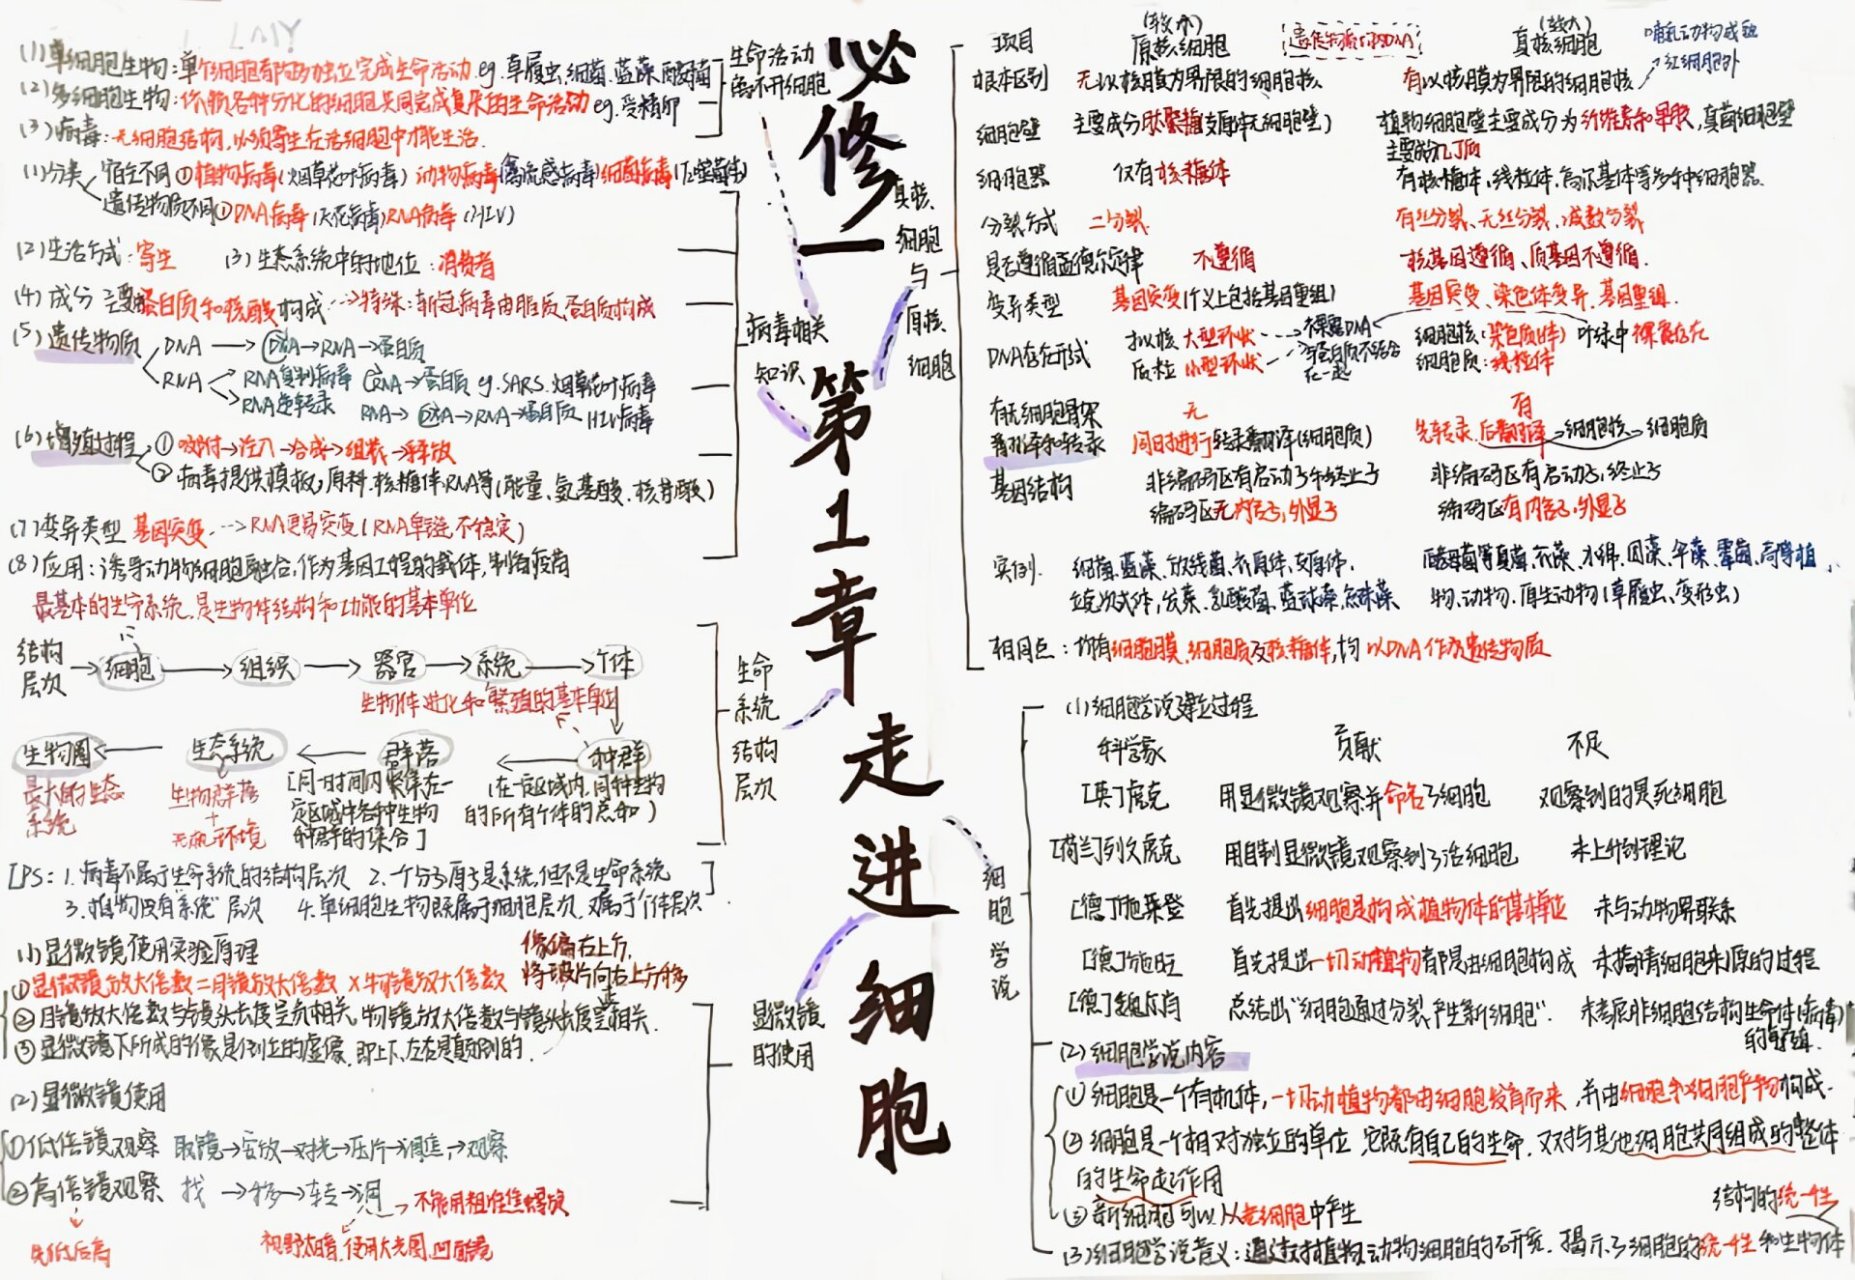 必修一 第1章 走进细胞
生命活动离不开细胞
(1)单细胞生物:单个细胞都能够独立完成生命活动 eg.草履虫,细菌,蓝藻,酵母菌
(2)多细胞生物:依赖各种分化的细胞共同完成复杂的生命活动 eg.受精卵
(3)病毒:无细胞结构,必须寄生在活细胞中才能生活.
病毒相关知识
(1)分类 宿主不同①植物病毒(烟草花叶病毒) 动物病毒(禽流感病毒)细菌病毒(T2噬菌体)
遗传物质不同①DNA病毒(天花病毒)RNA病毒(HIV)
(2)生活方式:寄生 (3)生态系统中的地位:消费者
(4)成分 主要由蛋白质和核酸构成→特殊:新冠病毒由脂质、蛋白质构成
(5)遗传物质
DNA → DNA→RNA→蛋白质
RNA RNA复制病毒 RNA→蛋白质 eg.SARS.烟草花叶病毒
RNA逆转录 RNA→DNA→RNA→蛋白质 HIV病毒
(6)增殖过程 ①吸附→注入→合成→组装→释放
②病毒提供模板,原料.核糖体.RNA等(能量、氨基酸、核苷酸)
(7)变异类型 基因突变→RNA更易突变(RNA单链,不稳定)
(8)应用:诱导动物细胞融合,作为基因工程的载体,制备疫苗
生命系统结构层次
最基本的生命系统,是生物体结构和功能的基本单位
结构层次→细胞→组织→器官→系统→个体
生物体进化和繁殖的基本单位
生物圈←生态系统←群落←种群
最大的生态系统
生物群落+无机环境
[同一时间内聚集在一定区域中各种生物种群的集合]
(在一定区域内,同种生物的所有个体的总和)
[PS:1.病毒不属于生命系统的结构层次 2.一个分子原子是系统,但不是生命系统
3.植物没有"系统"层次 4.单细胞生物既属于细胞层次,又属于个体层次]
显微镜的使用
(1)显微镜使用实验原理
像偏右上方,将玻片向右上方移
①显微镜放大倍数=目镜放大倍数×物镜放大倍数
②目镜放大倍数与镜头长度呈负相关,物镜放大倍数与镜头长度呈正相关.
③显微镜下所成的像是倒立的虚像,即上下、左右是颠倒的.
(2)显微镜使用
①低倍镜观察 取镜→安放→对光→压片→调焦→观察
②高倍镜观察 找→移→转→调→不能用粗准焦螺旋
先低后高
视野太暗,使用大光圈,凹面镜
真核细胞与原核细胞
项目 (较小)原核细胞 遗传物质均为DNA (较大)真核细胞 哺乳动物成熟红细胞外
根本区别 无以核膜为界限的细胞核 有以核膜为界限的细胞核
细胞壁 主要成分肽聚糖(支原体无细胞壁) 植物细胞壁主要成分为纤维素和果胶,真菌细胞壁主要成分几丁质
细胞器 仅有核糖体 有核糖体,线粒体,高尔基体等多种细胞器.
分裂方式 二分裂 有丝分裂、无丝分裂、减数分裂
是否遵循孟德尔定律 不遵循 核基因遵循、质基因不遵循.
变异类型 基因突变(广义上包括基因重组) 基因突变、染色体变异、基因重组.
DNA存在形式 拟核:大型环状→裸露DNA 细胞核:(染色质(体)) 叶绿中裸露存在
质粒:小型环状→与蛋白质不结合在一起 细胞质:线粒体
有无细胞骨架 无 有
翻译和转录 同时进行转录翻译(细胞质) 先转录,后翻译→细胞核→细胞质
基因结构 非编码区有启动子和终止子 非编码区有启动子,终止子
编码区无内含子,外显子 编码区有内含子,外显子
实例. 细菌,蓝藻,放线菌,衣原体,支原体.
立克次氏体,发菜,乳酸菌,蓝球藻,念珠藻
酵母菌等真菌,衣藻,水绵,团藻,伞藻,霉菌,高等植物、动物、原生动物(草履虫、变形虫)
相同点:均有细胞膜,细胞质及核糖体,均以DNA作为遗传物质
细胞学说
(1)细胞学说建立过程
科学家 贡献 不足
[英]虎克 用显微镜观察并命名了细胞 观察到的是死细胞
[荷兰]列文虎克 用自制显微镜观察到了活细胞 未上升到理论
[德]施莱登 首先提出细胞是构成植物体的基本单位 未与动物界联系
[德]施旺 首先提出一切动植物都是由细胞构成 未搞清细胞来源的过程
[德]魏尔肖 总结出"细胞通过分裂产生新细胞". 未考虑非细胞结构生命体(病毒)的繁殖.
(2)细胞学说内容
①细胞是一个有机体,一切动植物都由细胞发育而来,并由细胞和细胞产物构成.
②细胞是一个相对独立的单位,它既有自己的生命,又对与其他细胞共同组成的整体的生命起作用
③新细胞可以从老细胞中产生
结构的统一性
(3)细胞学说意义:通过对植物,动物细胞的研究.揭示了细胞的统一性和生物体